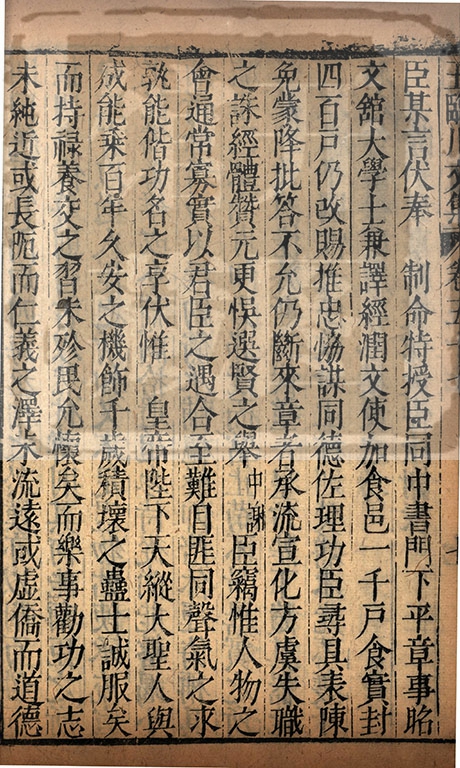 王臨川文集 卷五十七 七
臣某言伏奉 制命特授臣同中書門下平章事昭
文舘大學士兼譯經潤文使加食邑一千戸食實封
四百戸仍改賜推忠協謀同德佐理功臣尋具表陳
免蒙降批荅不允仍斷來章者承流宣化方虞失職
之誅經體贊元更悞選賢之舉中謝臣竊惟人物之
會通常寡實以君臣之遇合至難自匪同聲氣之求
孰能偕功名之享伏惟 皇帝陛下天縱大聖人與
成能乘百年久安之機飾千歲積壞之蠱士誠服矣
而持祿養交之習未殄民允懷矣而樂事勸功之志
未純近或長阨而仁義之澤未流遠或虛僑而道德